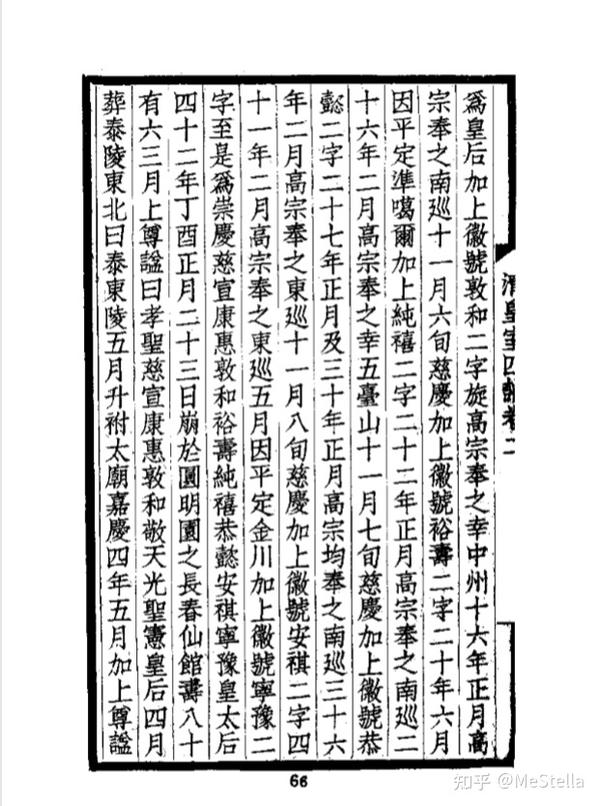 清皇室四譜卷二
爲皇后加上徽號敦和二字旋高宗奉之幸中州十六年正月高
宗奉之南巡十一月六旬慈慶加上徽號裕壽二字二十年六月
因平定準噶爾加上純禧二字二十二年正月高宗奉之南巡二
十六年二月高宗奉之幸五臺山十一月七旬慈慶加上徽號恭
懿二字二十七年正月及三十年正月高宗均奉之南巡三十六
年二月高宗奉之東巡十一月八旬慈慶加上徽號安祺二字四
十一年二月高宗奉之東巡五月因平定金川加上徽號寧豫二
字至是爲崇慶慈宣康惠敦和裕壽純禧恭懿安祺寧豫皇太后
四十二年丁酉正月二十三日崩於圓明園之長春仙館壽八十
有六三月上尊謚曰孝聖慈宣康惠敦和敬天光聖憲皇后四月
葬泰陵東北曰泰東陵五月升祔太廟嘉慶四年五月加上尊謚
66
知乎 @MeStella